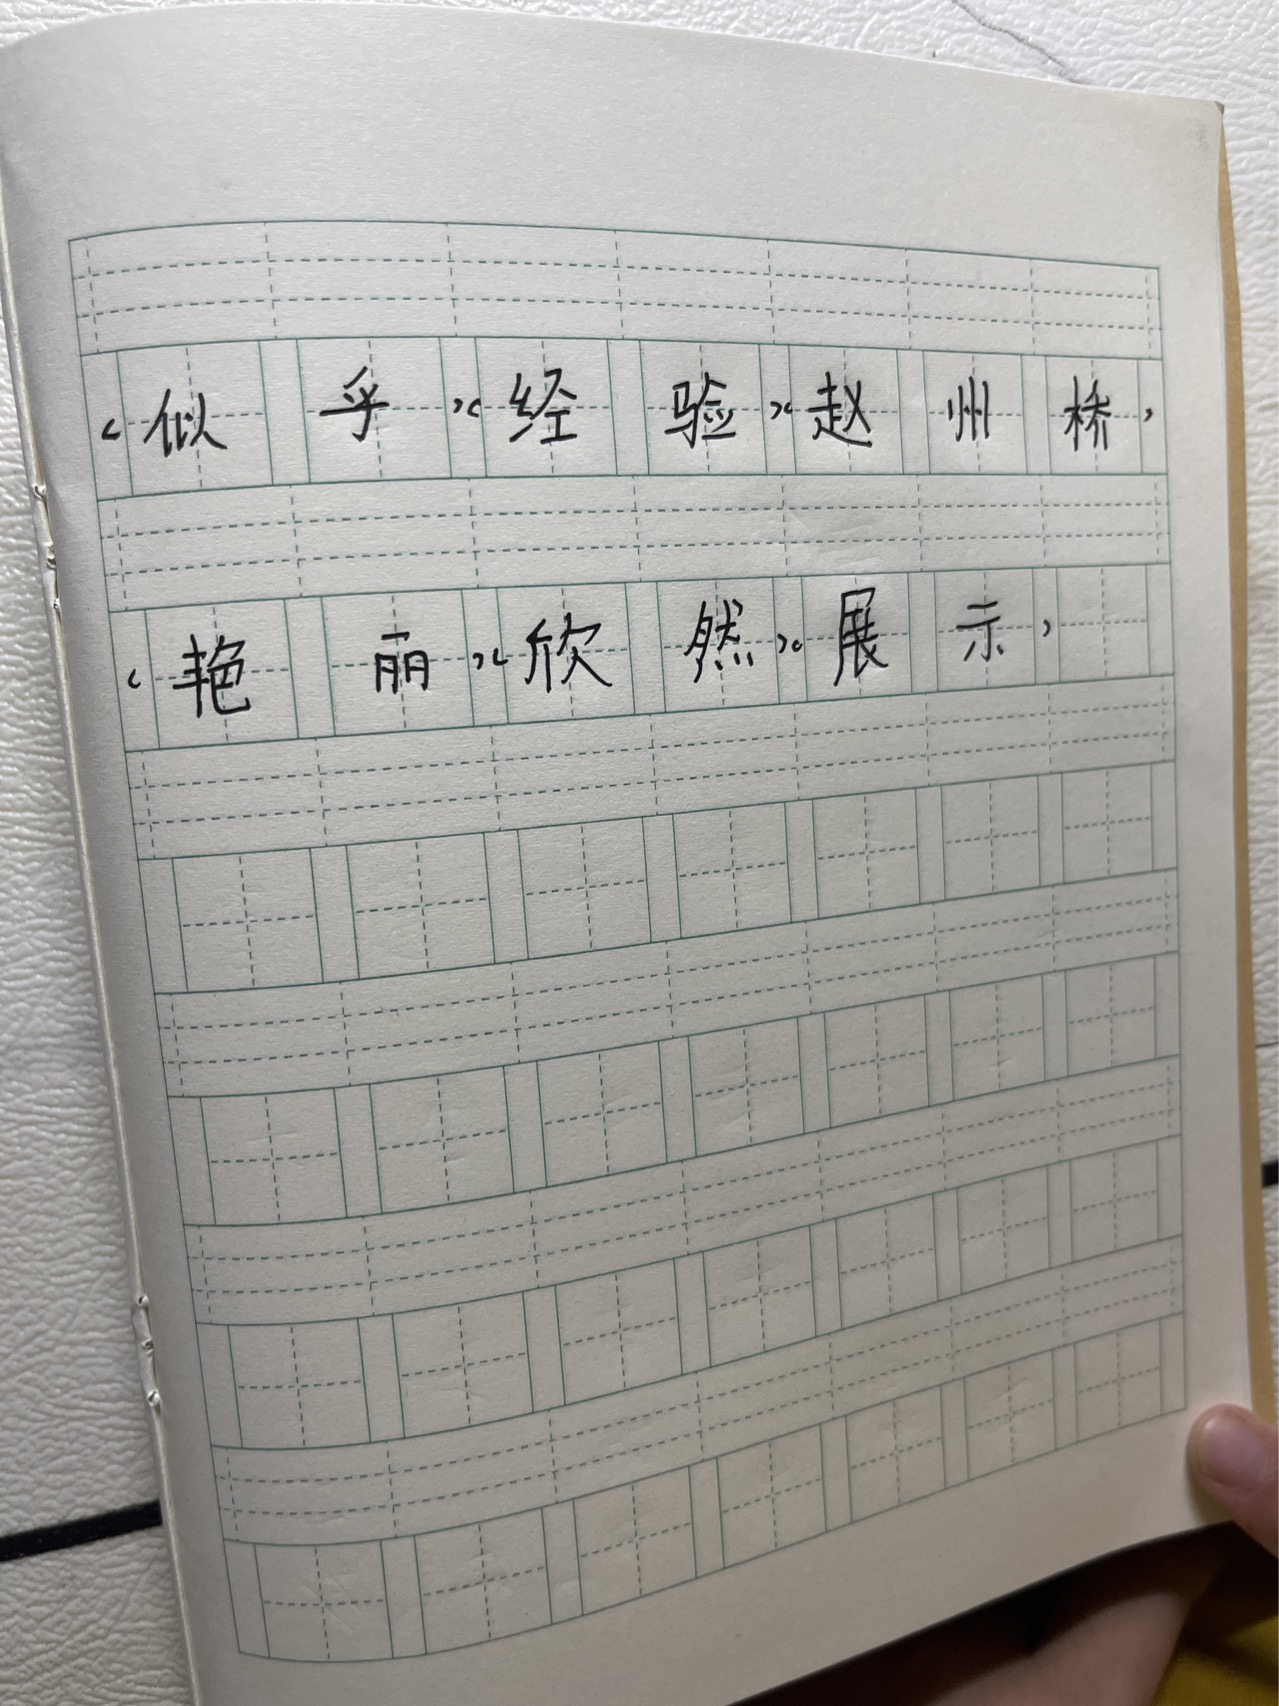 (似乎)(经验)(赵州桥)
(艳丽)(欣然)(展示)